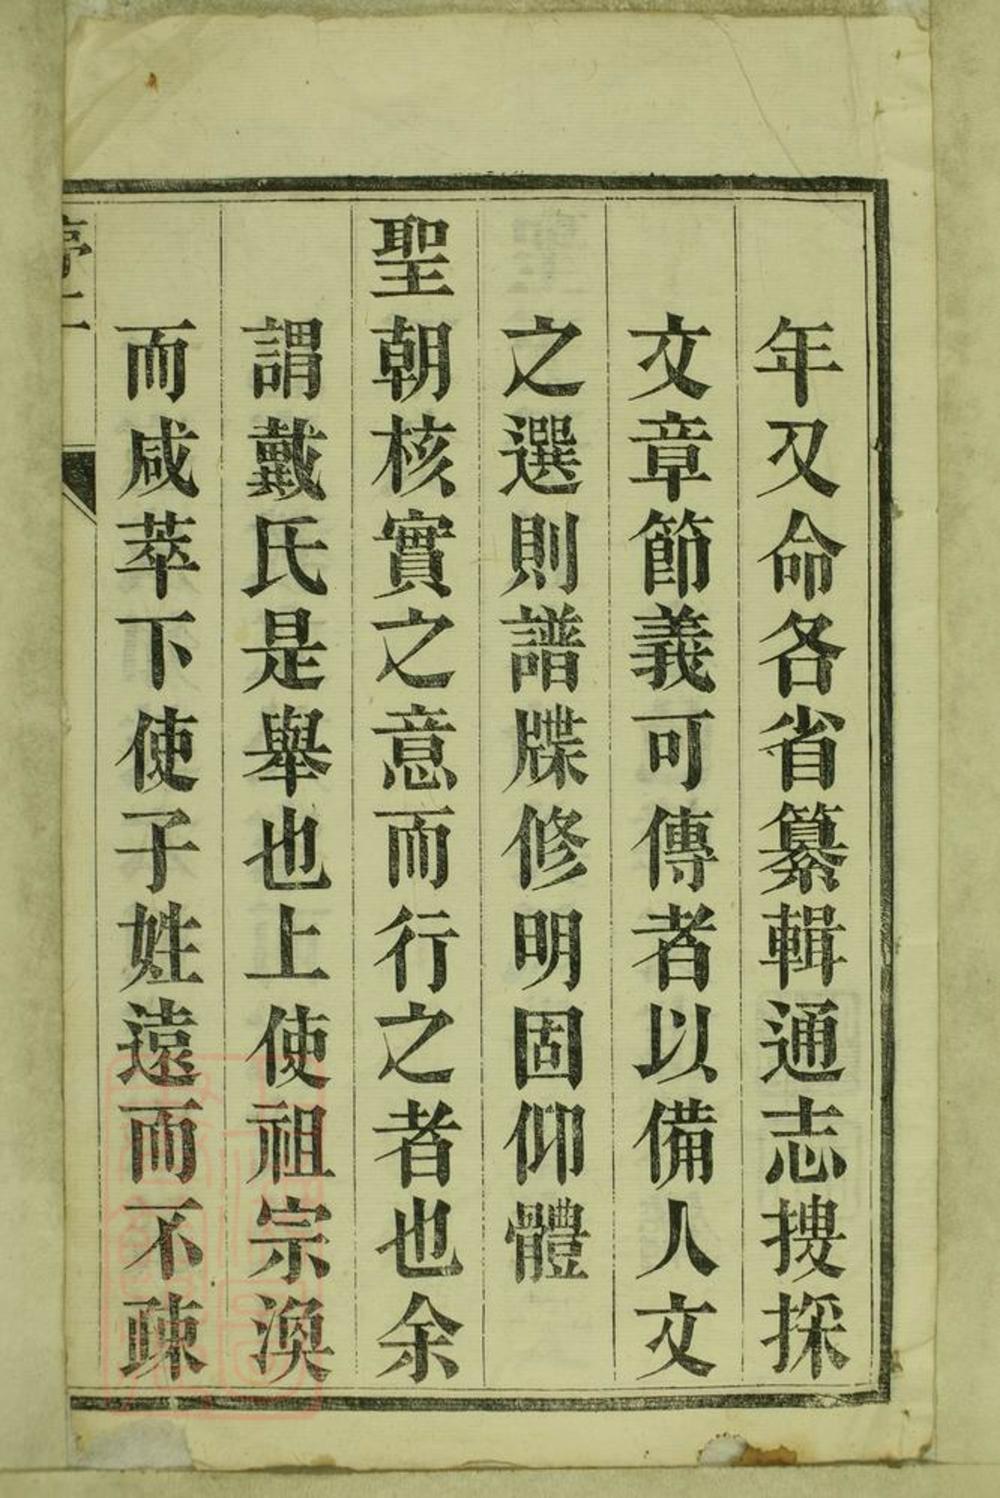 年又命各省纂輯通志搜採
文章節義可傳者以備人文
之選則譜牒修明固仰體
聖朝核實之意而行之者也余
謂戴氏是舉也上使祖宗渙
而咸萃下使子姓遠而不疎